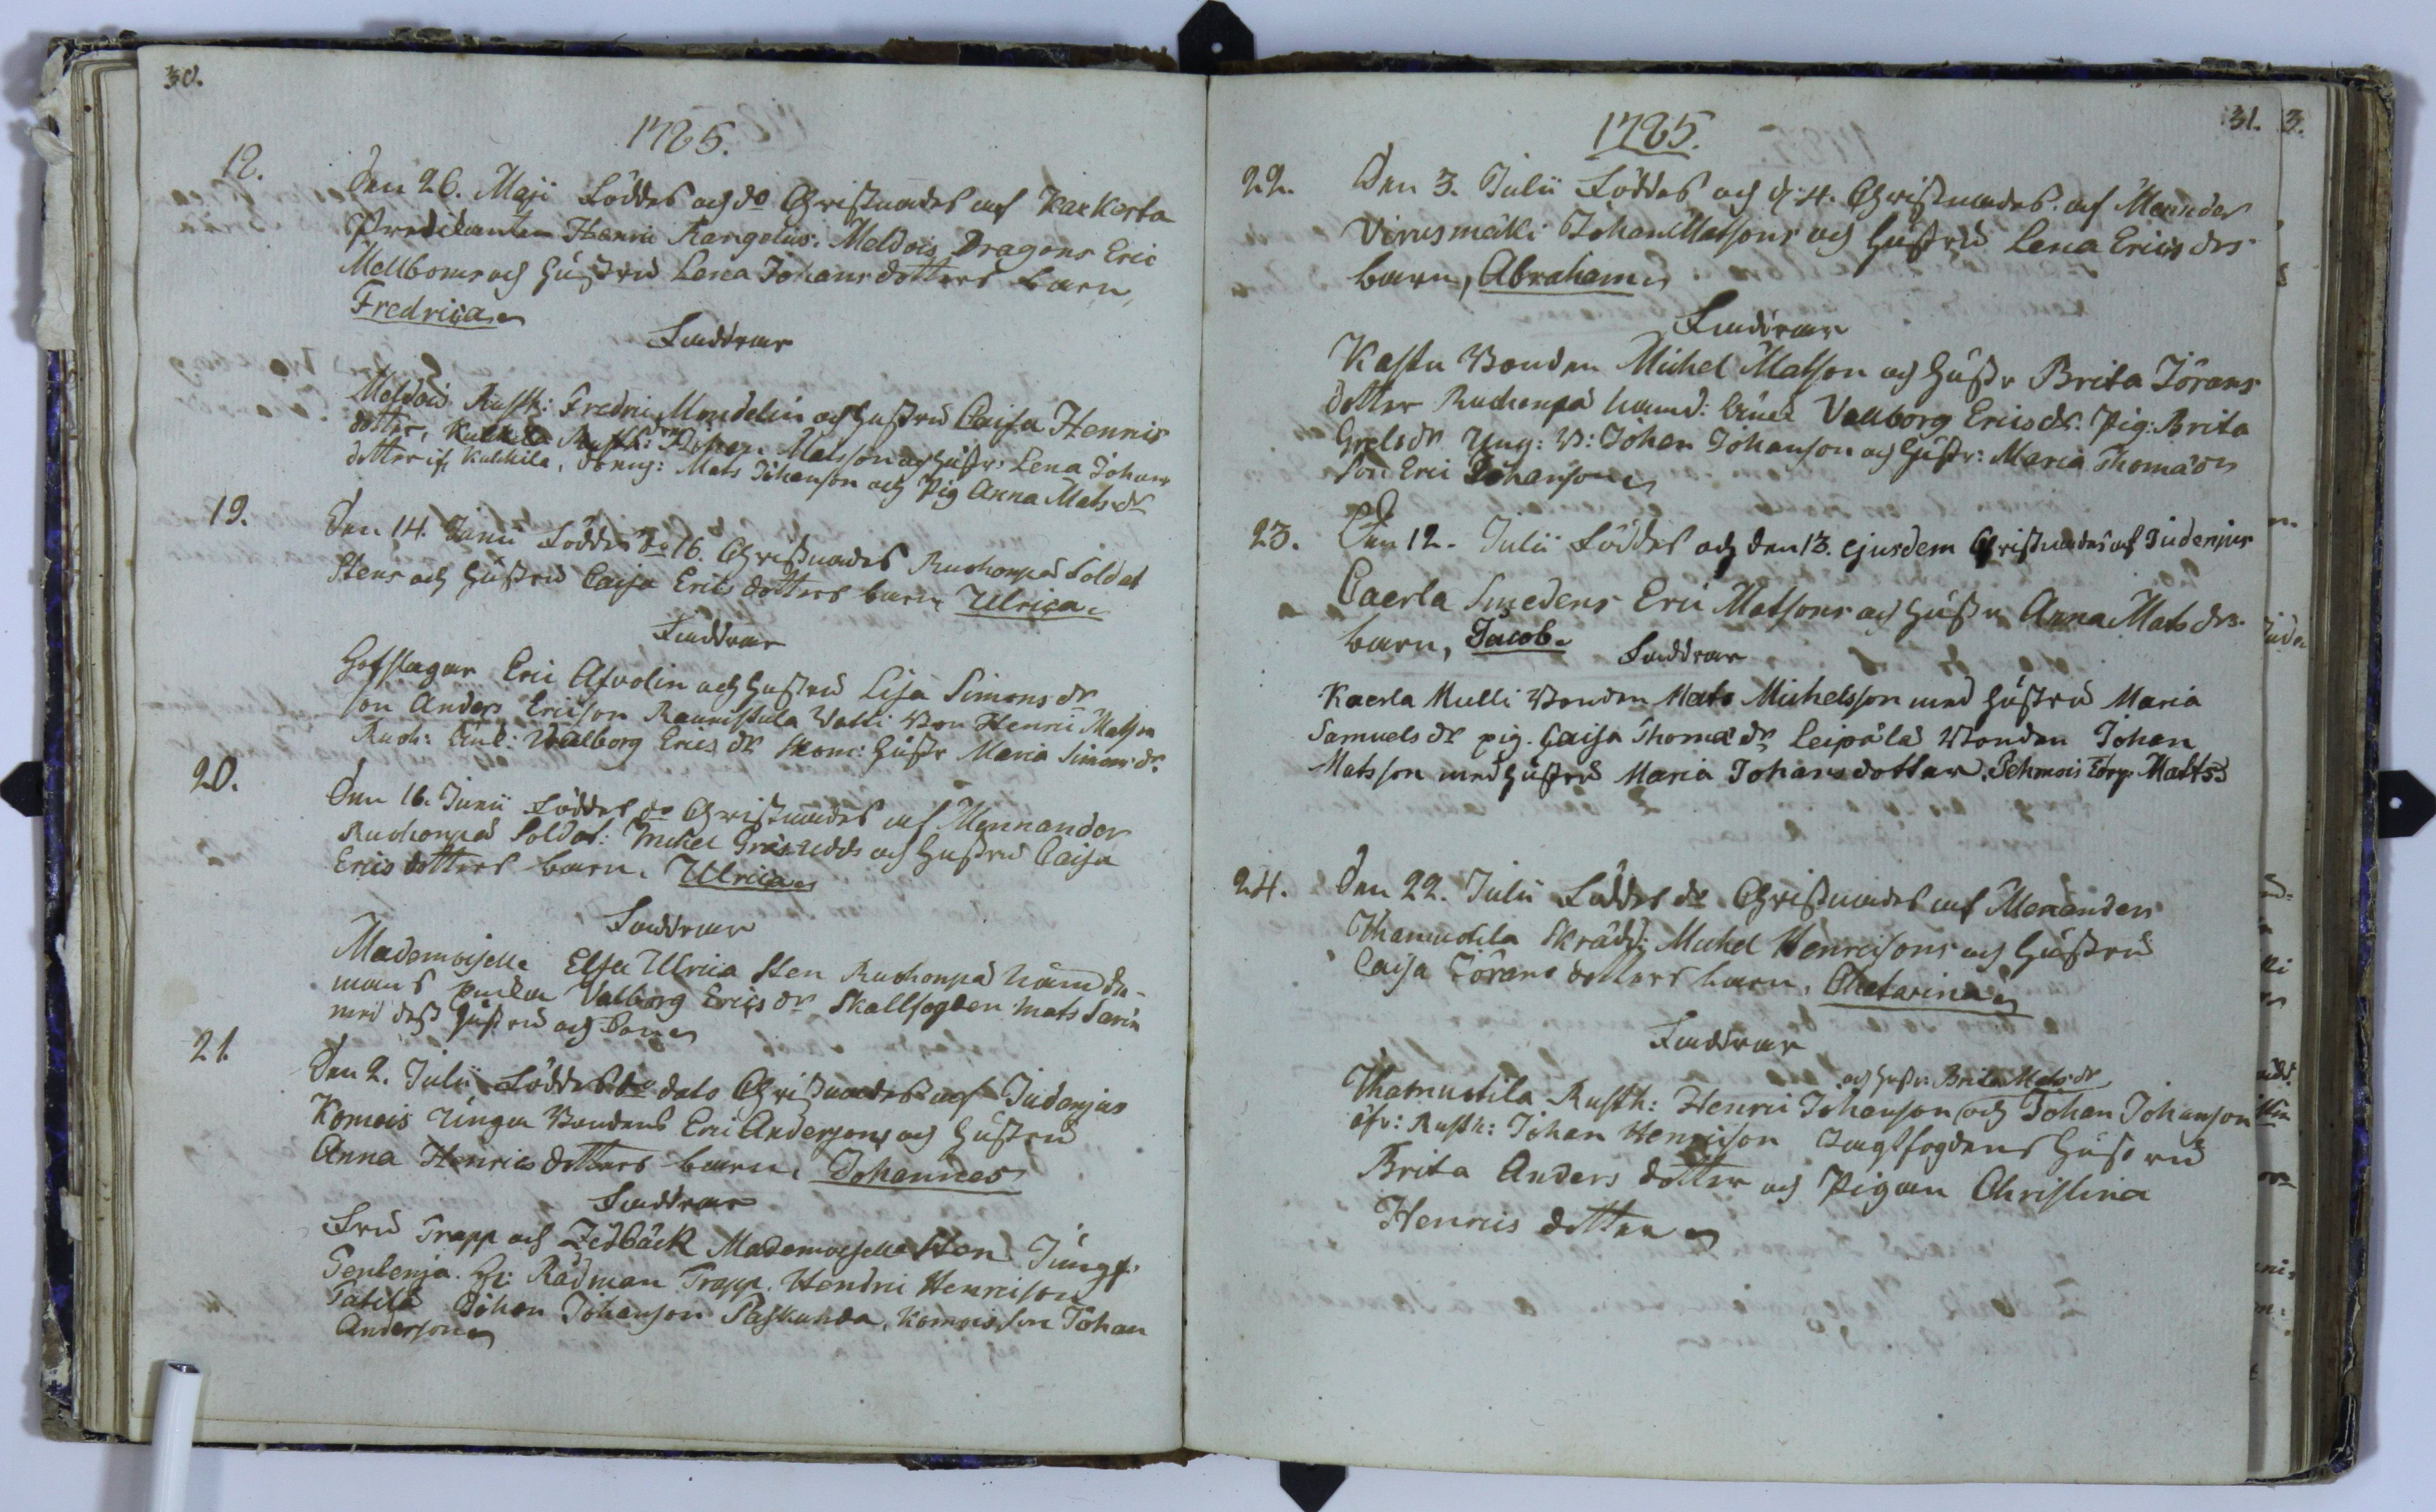 30.
1785.
18.
Den 26. Maji Föddes och do Christnades af Karkerta
Predikanten Henric Rangelius. Maldois Dragons Eric
Mellboms och hustru Lena Johansdotters barn,
Fredrica
Faddrar
Maldois Rusth: Fredric Mondelin och hustru Caisa Henrics
dotter, Kulkila Rusth: Matsson och hustr: Lena Johans
dotter if. Kulkila, dreng: Mats Johanson och Pig Anna Mats dr
19.
Den 14. Junii Föddes do 16. Christnades Ruohonpä Soldat
Stens och hustru Caisa Erics dotters barn Ulrica
Faddrar
Hofslagar Eric Afvolin och hustru Lisa Simons dr
son Anders Ericson Raumistula Watti Bon Henric Matson
Ruoh: Enk: Walborg Erics dr Kom: hustr Maria Simons dr
20.
Den 16. Junii Föddes do Christnades af Mennander
Ruohonpä Soldat: Mickel Gräsredds och hustru Caisa
Erics dotters barn. Ulrica
Faddrar
Mademoiselle Elsa Ulrica Sten Ruohonpä Nämde-
mans Enka Valborg Erics dr Skallfogden Mats Sarin
med dess hustru och Son
21.
Den 2. Julii Föddes do dato Christnades af Judenjus
Komois Unga Bondens Eric Andersons och hustru
Anna Henrics dotters barn. Johannes
Faddrar
Fru Trapp och Zidbäck Mademoiselle Sten Jungf.
Gentenja. Hr: Rådman Trapp. Hendric Henricson
Tatila Johan Johanson Paskunda, Komois son Johan
Anderson
31.
3.
1785.
22.
Den 3. Julii Föddes och d: 4. Christnades af Mennder
Virusmäki Johan Matsons och hustru Lena Erics drs
barn, Abraham
Faddrar
Kastu Bonden Michel Matson och hustr Brita Jörans
dotter Ruohonpä Nämd: Enk Vallborg Erics dr. Pig: Brita
Grels dr Ung: B: Johan Johanson och hustr: Maria Thomædr
Son Eric Johanson
23.
Den 12. Julii Föddes och den 13. ejusdem Christnades af Judenjus
Caerla Smedens Eric Matsons och hustr Anna Mats drs
barn, Jacob
Faddrar
Kaerla Mulli Bonden Mats Michelsson med hustru Maria
Samuels dr pig. Caisa Thomædr, Leipälä Bonden Johan
Matsson med hustru Maria Johans dotter. Tehmois Torp. Matts
24.
Den 22. Julii Föddes do Christnades af Menander
Thamndila Skrädd: Michel Henricsons och hustru
Caisa Jörans dotters barn. Chatarina
Faddrar
och hustr: Brita Mats dr
Thamndila Rusth: Henric Johanson och Johan Johanson
öfv: Rusth: Johan Henricson Jagtfogdens hustru
Brita Anders dotter och Pigan Christina
Henrics dotter